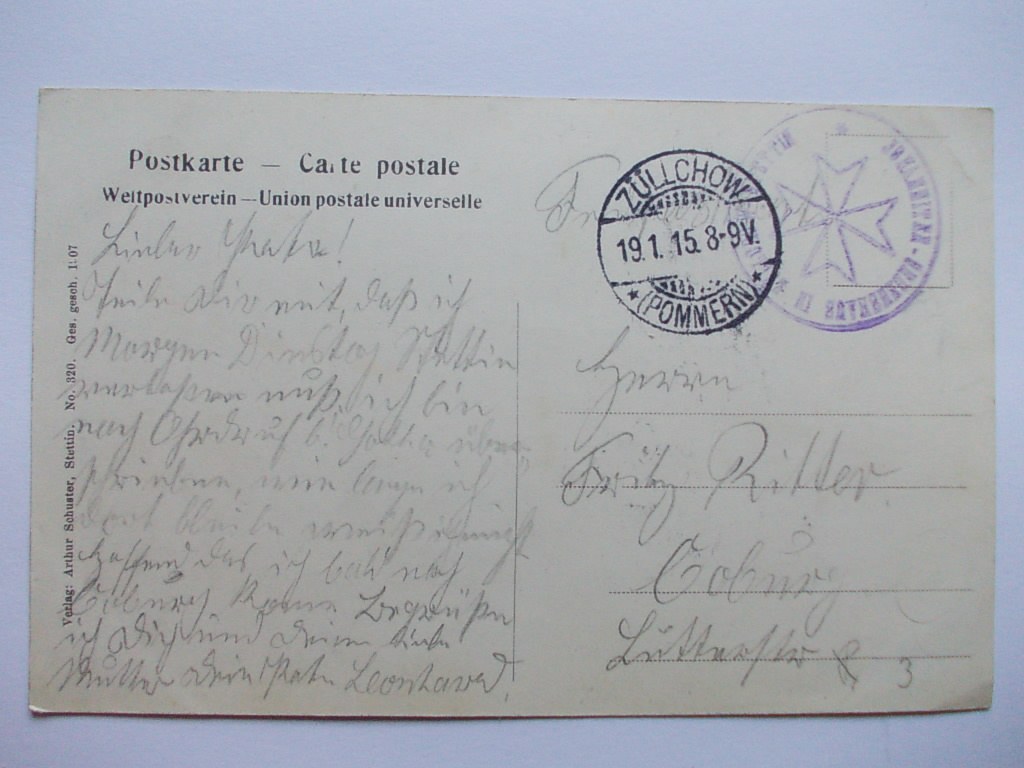 Postkarte — Carte postale
Weltpostverein — Union postale universelle
Verlag: Arthur Schuster, Stettin. No. 320. Ges. gesch. 1907
Lieber Pate!
Teile Dir mit, daß ich
Morgen Dinstag Stettin
verlassen muß, ich bin
nach Ohrdruf b. Gotha über
schrieben, wie lange ich
dort bleibe weiß ich nicht
Hoffend das ich bald nach
Coburg komme Begrüßen
ich Dich und deine liebe
Mutter dein Pate Leonhard.
ZÜLLCHOW
19.1.15.8-9V.
(POMMERN)
JOHANNITER-
Herrn
Fritz Ritter
Coburg
3